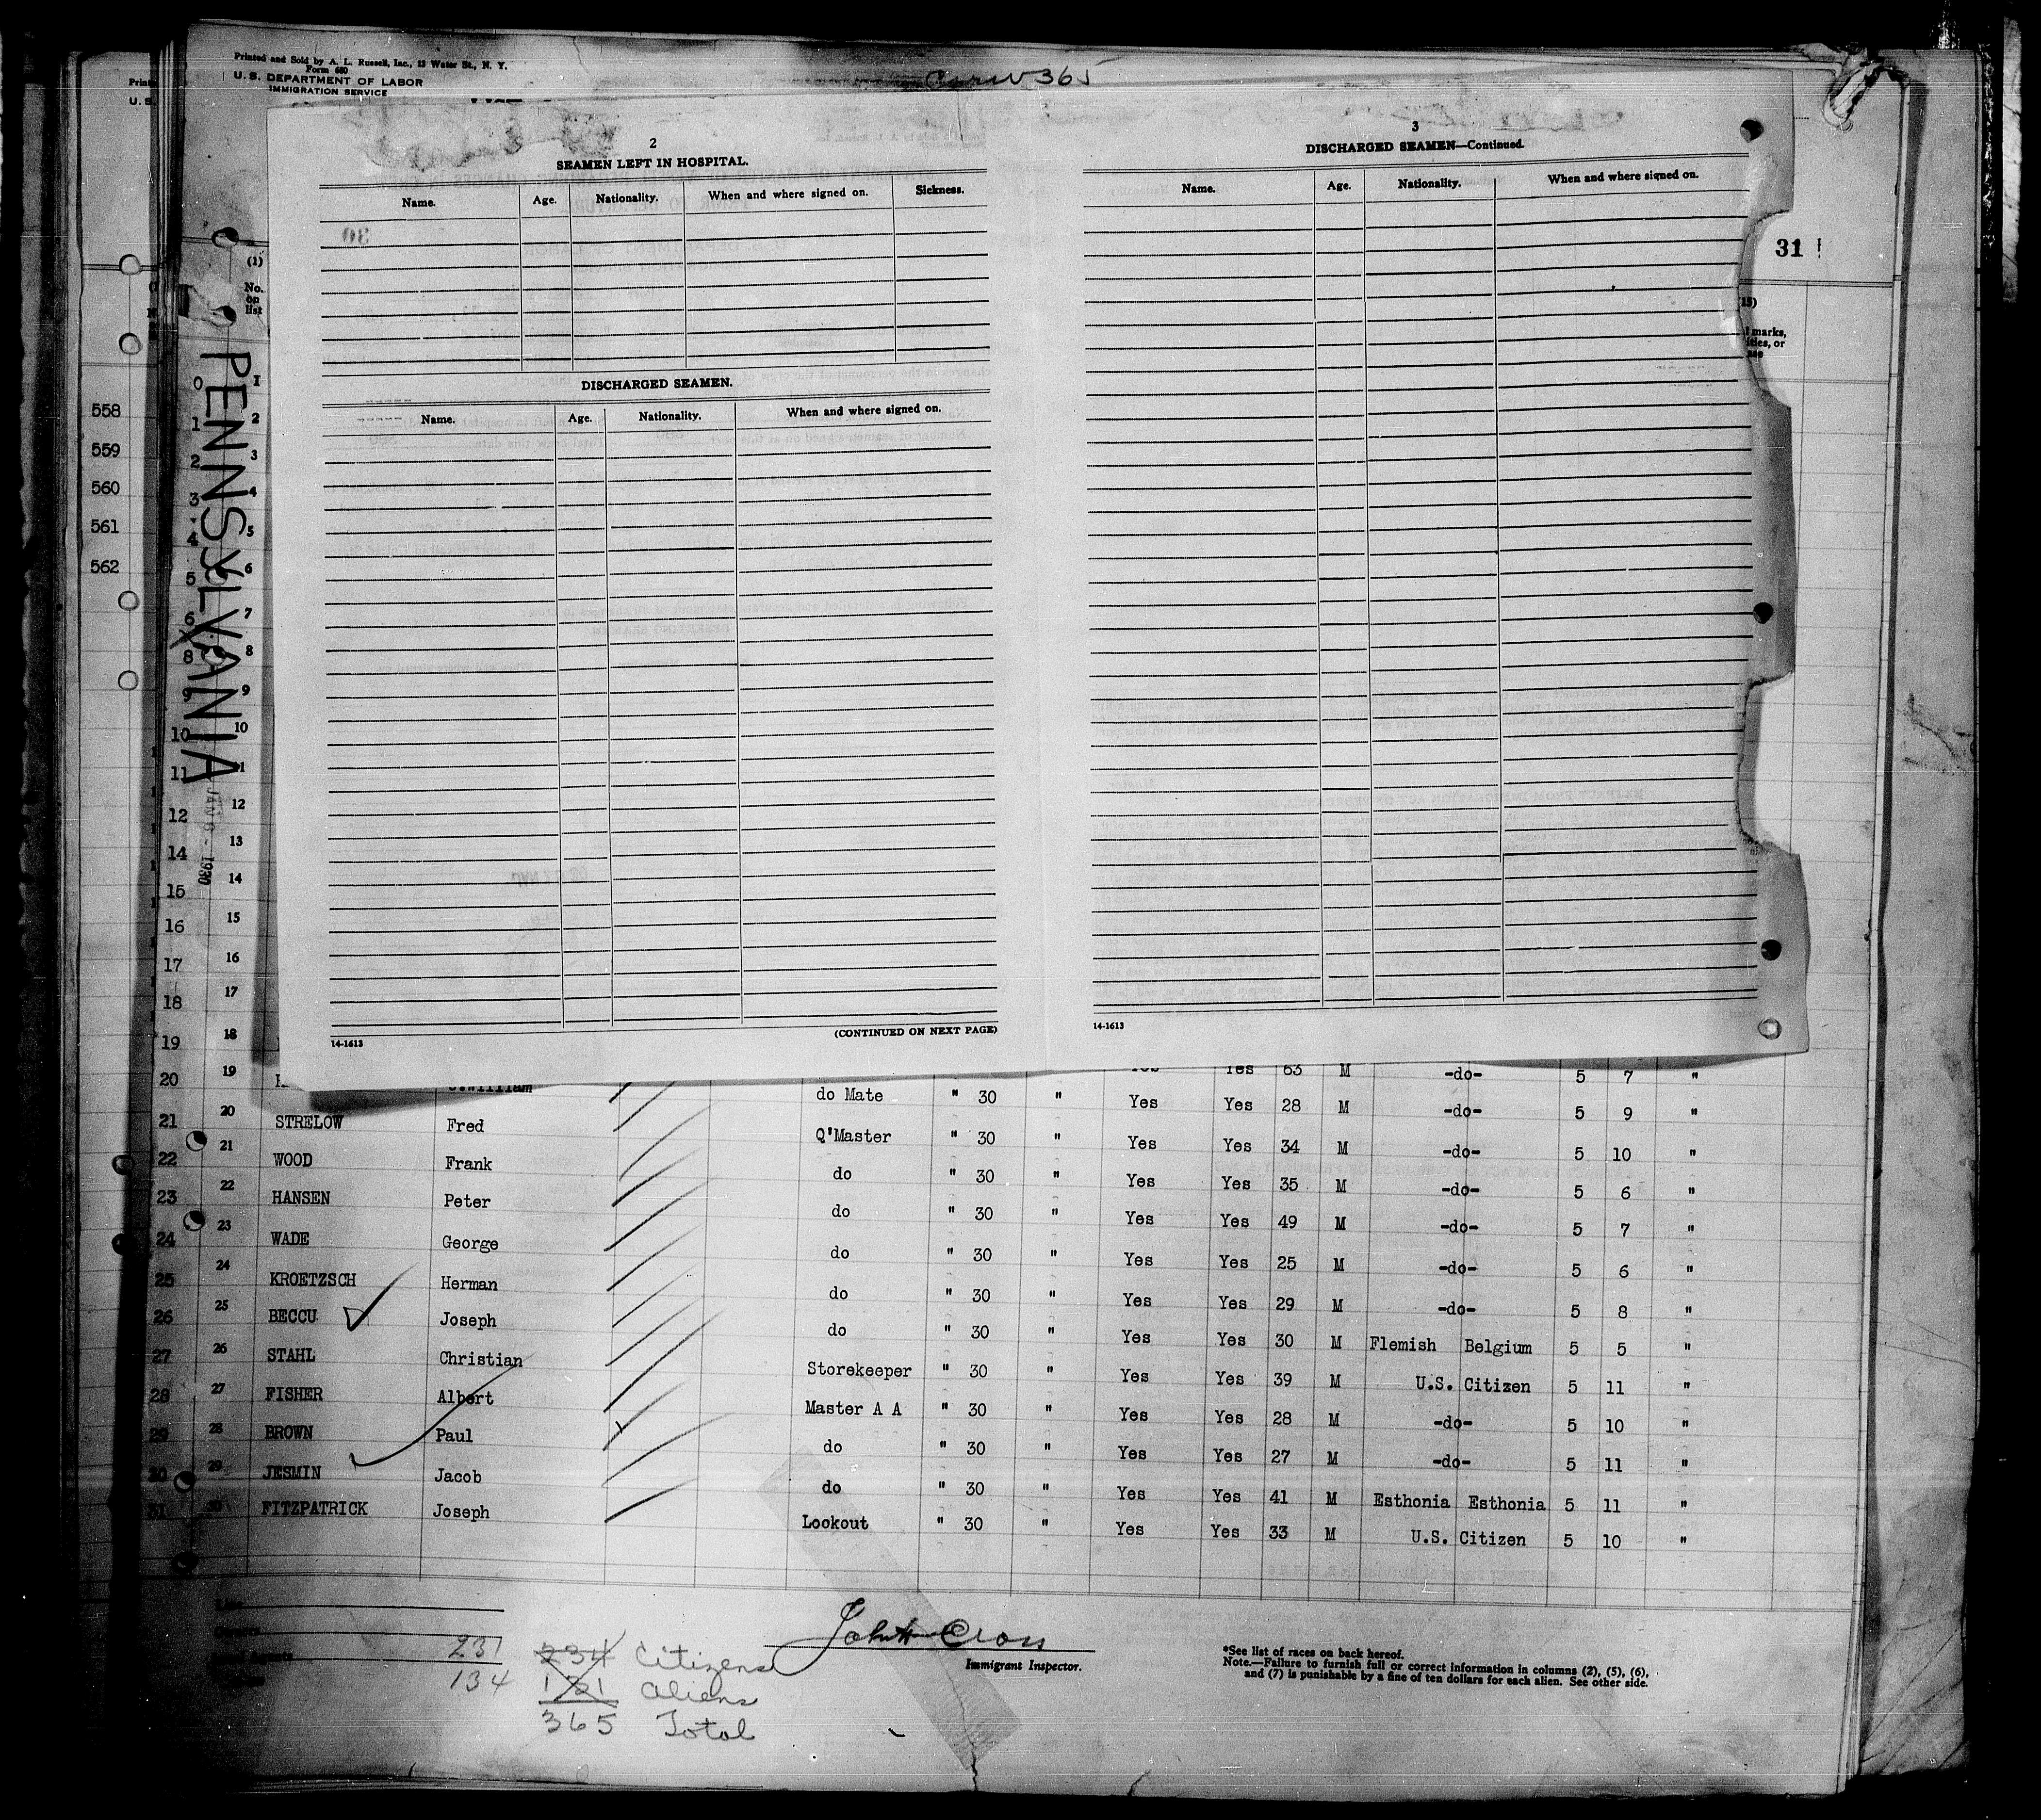 Printed and Sold by A. L. Russell, Inc., 13 Water St., N. Y.
Form 680
U.S. DEPARTMENT OF LABOR
IMMIGRATION SERVICE
Crew 365
2
SEAMEN LEFT IN HOSPITAL.
Name. Age. Nationality. When and where signed on. Sickness.
DISCHARGED SEAMEN.
Name. Age. Nationality. When and where signed on.
(CONTINUED ON NEXT PAGE)
14-1613
3
DISCHARGED SEAMEN—Continued.
Name. Age. Nationality. When and where signed on.
14-1613
31
(15)
marks,
ities, or
(1)
No.
on
list
558
559
560
561
562
PENNSYLVANIA
1930
0 1
1 2
2 3
3 4
4 5
5 6
6 7
8 8
9 9
10 10
11 11
12 12
14 13
15 14
16 15
17 16
18 17
19 18
20 19 J.William do Mate " 30 " Yes Yes 63 M -do- 5 7 "
21 20 STRELOW Fred Q'Master " 30 " Yes Yes 28 M -do- 5 9 "
22 21 WOOD Frank do " 30 " Yes Yes 34 M -do- 5 10 "
23 22 HANSEN Peter do " 30 " Yes Yes 35 M -do- 5 6 "
24 23 WADE George do " 30 " Yes Yes 49 M -do- 5 7 "
25 24 KROETZSCH Herman do " 30 " Yes Yes 25 M -do- 5 6 "
26 25 BECCU Joseph do " 30 " Yes Yes 29 M -do- 5 8 "
27 26 STAHL Christian Storekeeper " 30 " Yes Yes 30 M Flemish Belgium 5 5 "
28 27 FISHER Albert Master A A " 30 " Yes Yes 39 M U.S. Citizen 5 11 "
29 28 BROWN Paul do " 30 " Yes Yes 28 M -do- 5 10 "
30 29 JESMIN Jacob do " 30 " Yes Yes 27 M -do- 5 11 "
31 30 FITZPATRICK Joseph Lookout " 30 " Yes Yes 41 M Esthonia Esthonia 5 11 "
Yes Yes 33 M U.S. Citizen 5 10 "
231 234 Citizens
134 131 Aliens
365 Total
John H Cross
Immigrant Inspector.
*See list of races on back hereof.
Note.—Failure to furnish full or correct information in columns (2), (5), (6),
and (7) is punishable by a fine of ten dollars for each alien. See other side.